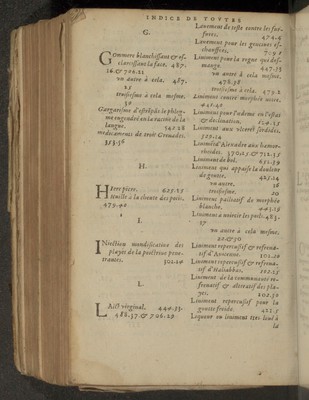 INDICE DE TOVTES
G.
Gommere blanchissant & es-
claircissant la face. 487.
16. & 706.22
vn autre à cela. 487.
25
troisiesme à cela mesme.
30
Gargarisme d'estrāpis le phleg-
me engendré en la racine de la
langue. 541.28
medicamēts de trois Grenades.
353.36
H.
Hiere picre. 625.25
à la cheute des poils.
479.40
I.
INiection mondificatiue des
playes de la poictrine pene-
trantes. 302.24
L.
LAict virginal. 449.33.
488.37 & 706.29
Lauement de teste contre les fur-
fures. 474.4
Lauement pour les genciues es-
chauffees.
Liniment pour la rogne qui des-
mange. 447.35
vn autre à cela mesme.
478.38
troisiesme à cela. 479.2
Liniment contre morphée noire.
Liniment pour l'œdeme en l'estat
& declination.
Liniment aux vlceres sordides.
Linimēt d'Alexādre aux hamor-
rhoides. 370.25 & 712.35
Liniment de bol. 651.39
Liniment qui appaise la douleur
de goutte. 425.24
vn autre. 26
troisiesme. 30
Liniment palliatif de morphée
blanche. 443.18
Liniment à noircir les poils. 483.
37
vn autre à cela mesme.
& 50
Liniment repercussif & refrena-
tif d'Auicenne. 102.20
Liniment repercussif & refrena-
tif d'Haliabbas. 102.25
Liniment de la communauté re-
frenatif & alteratif des pla-
yes. 202.50
Liniment repercussif pour la
goutte froide. 422.5
Liqueur ou liniment tres loué à
la